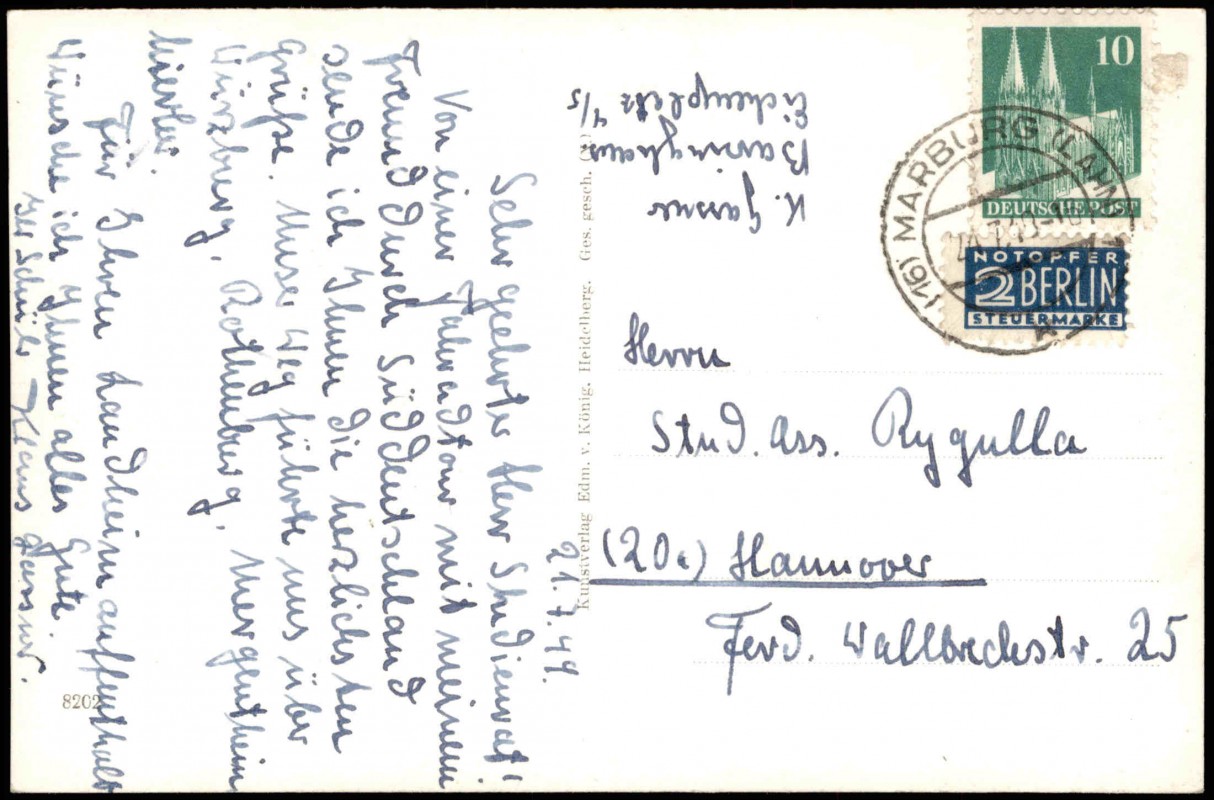 21.7.49.
Sehr geehrter Herr Studienrat!
Von einer Fahradtour mit meinem
Freund durch Süddeutschland
sende ich Ihnen die herzlichsten
Grüße. Unser Weg führte uns über
Würzberg, Rothenberg, Mergentheim
hierher.
Für Ihren Landheimaufenthalt
wünsche ich Ihnen alles Gute
Ihr Schüler Klaus Gassner.
8202
Kunstverlag Edm. v. König, Heidelberg. Ges. gesch.
K. Gassner
Barsinghaus
Eichenplatz 4/5
10
DEUTSCHE POST
NOTOPFER
2 BERLIN
STEUERMARKE
(16) MARBURG (LAHN)
Herrn
Stud. Ass. Rygulla
(20a) Hannover
Ferd. Wallbrechstr. 25